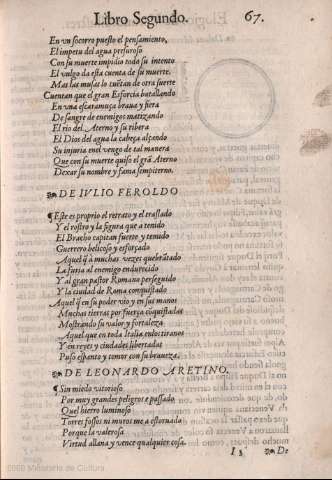 Libro Segundo. 67.
En vn socorro puesto el pensamiento,
El impetu del agua presuroso
Con su muerte impidio todo su intento
El vulgo da esta cuenta de su muerte.
Mas las musas lo cuētan de otra suerte
Cuentan que el gran Esforcia batallando
En vna escaramuça braua y fiera
De sangre de enemigos matizando
El rio del Aterno y su ribera
El Dios del agua la cabeça alçando
Su injuria en el vengo de tal manera
Que con su muerte quiso el grā Aterno
Dexar su nombre y fama sempiterno.
DE IVLIO FEROLDO
¶Este es proprio el retrato y el traslado
Y el rostro y la figura que a tenido
El Bracho capitan fuerte y temido
Guerrero bellicoso y esforçado
Aquel q̄ à muchas vezes quebrātado
La furia al enemigo endurecido
Y al gran pastor Romano perseguido
Y la ciudad de Roma conquistado
Aquel q̄ en su poder vio y en sus manos
Muchas tierras por fuerça cōquistadas
Mostrando su valor y fortaleza
Aquel que en toda Italia entre tiranos
Y en reyes y ciudades libertadas
Puso espanto y temor con su braueza.
DE LEONARDO ARETINO.
¶Sin miedo vitorioso
Por muy grandes peligros e passado
Quel hierro luminoso
Torres fossos ni muros me a estoruado
Porque la valerosa
Virtud allana y vence qualquier cosa.
I 3 De
Ministerio de Cultura